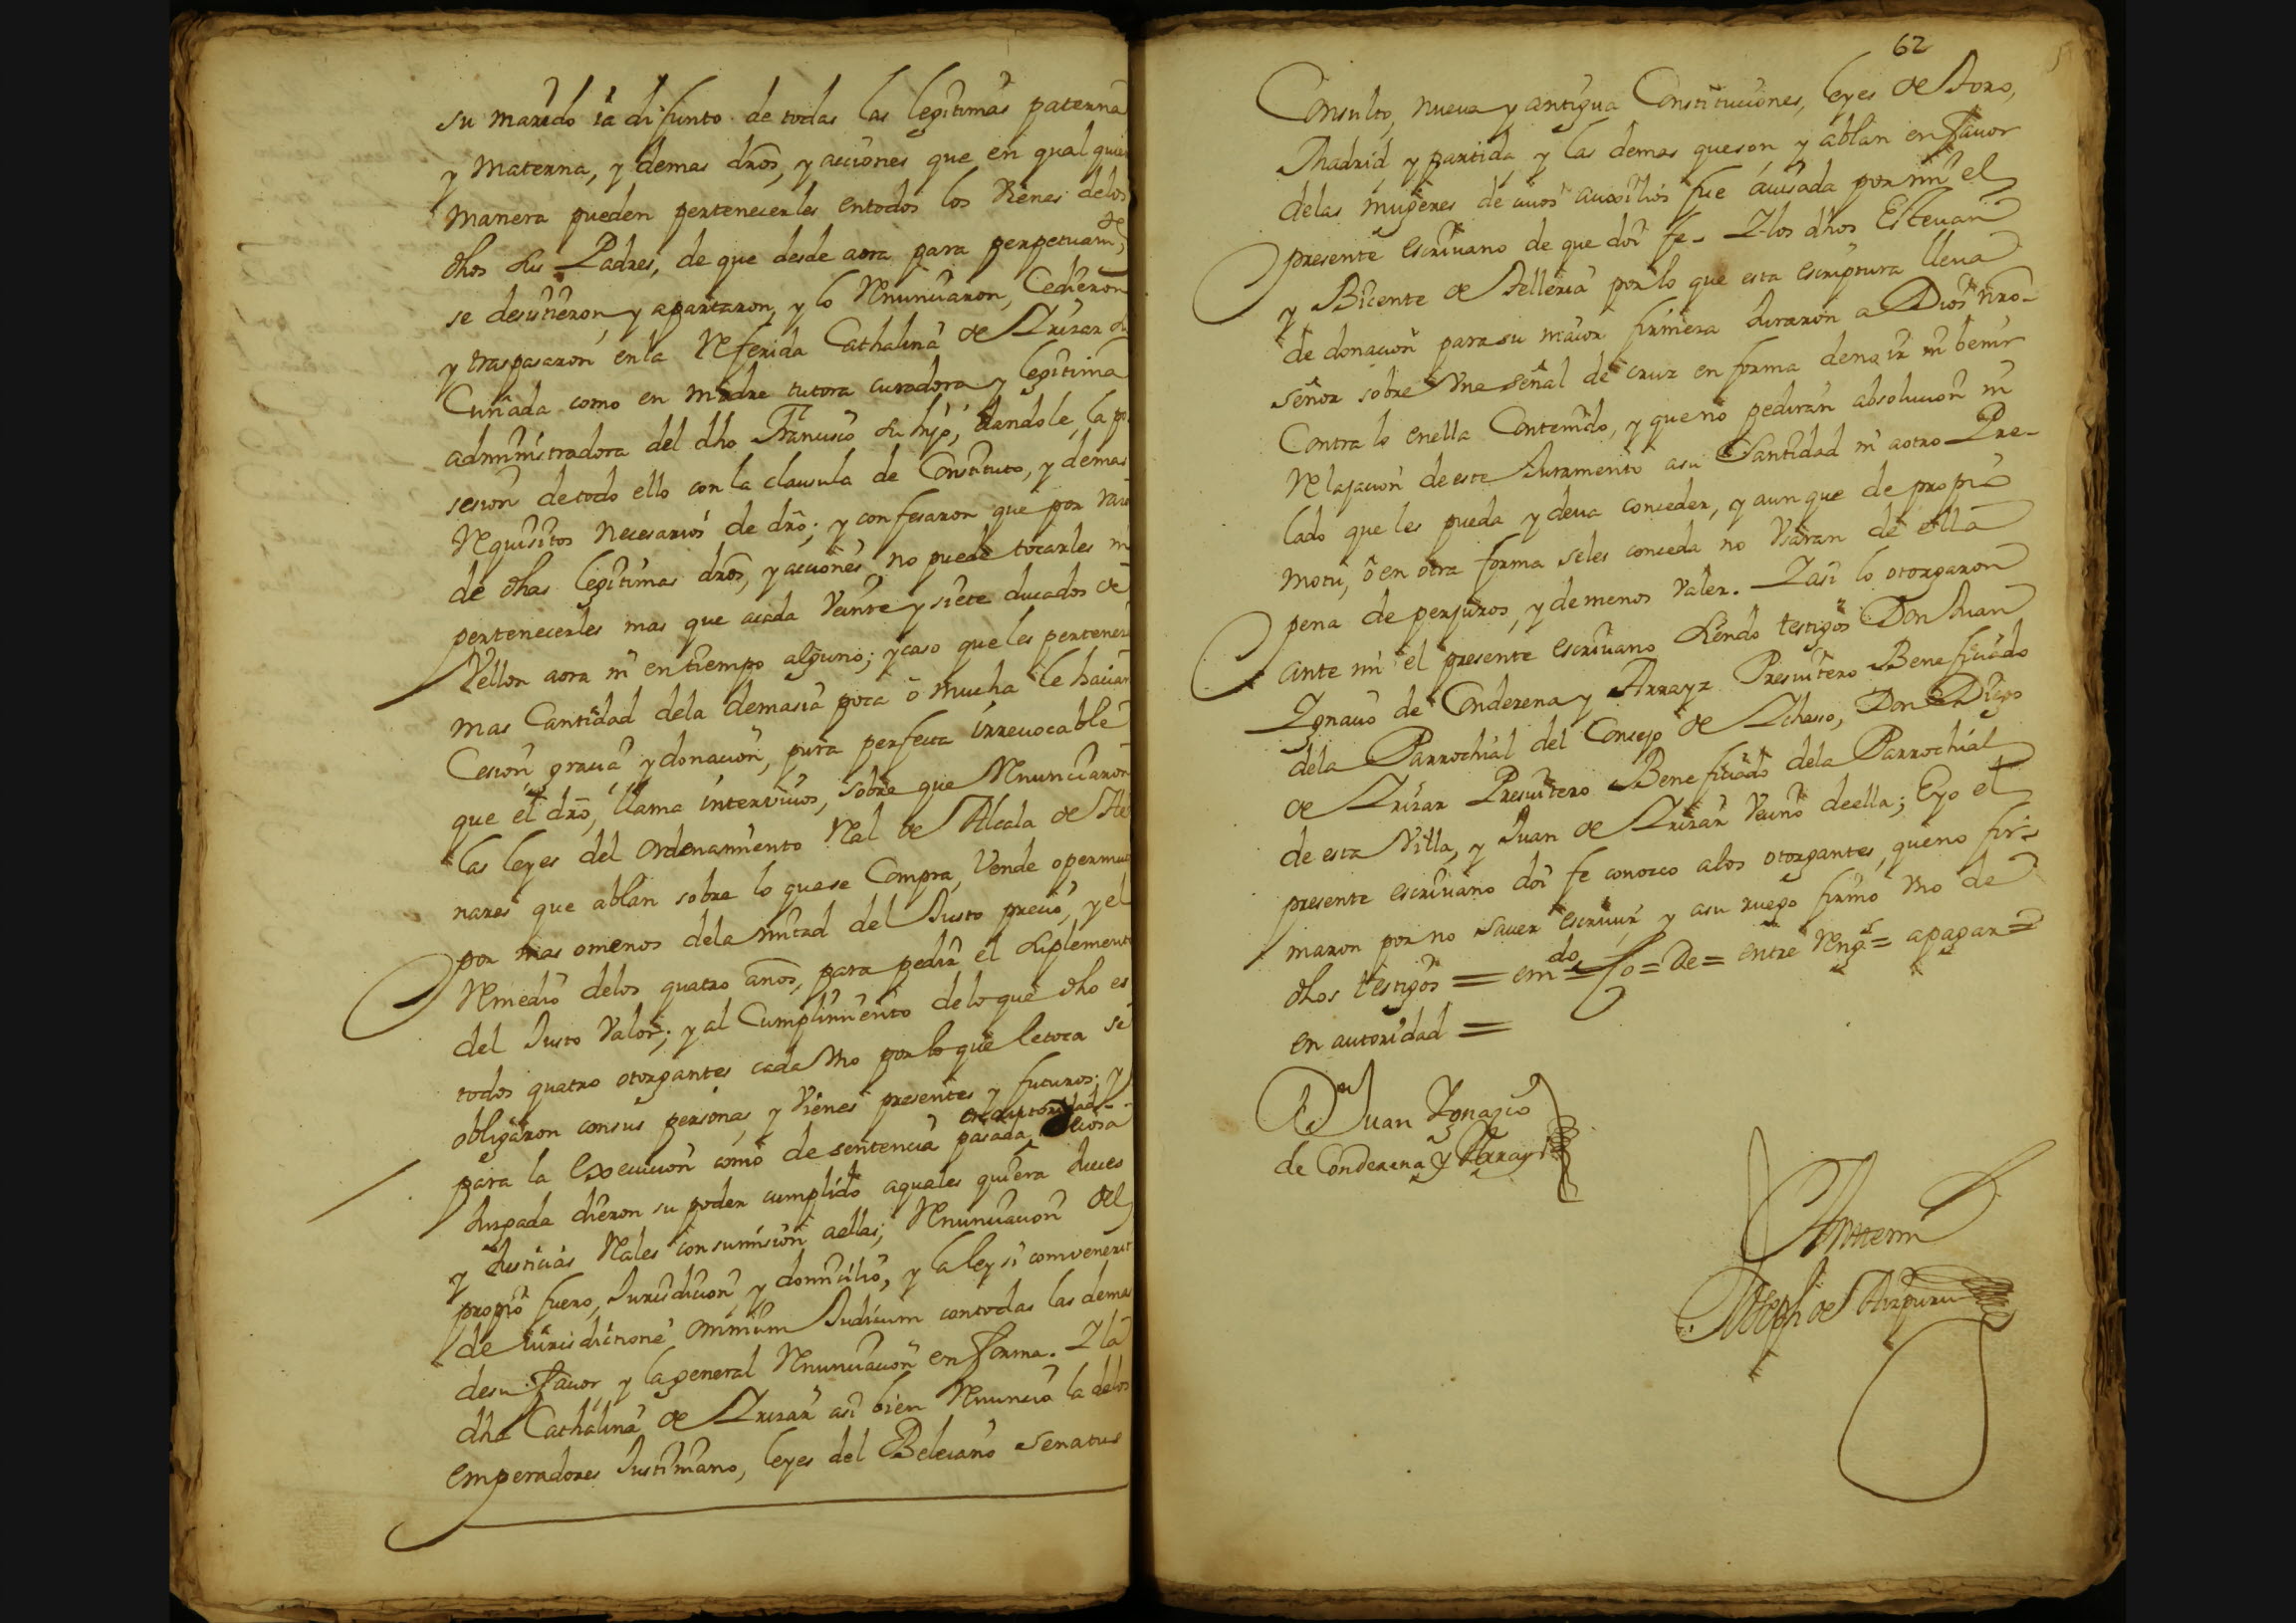 su marido ia difunto de todas las legitimas paterna
y materna, y demas dros, y acciones que en qual quier
manera pueden pertenecerles entodos los Vienes delos
dhos sus Padres, de que desde aora para perpetuam,
se desistieron y apartaron, y lo Renunciaron, Cedieron
y traspasaron en la Referida Cathalina de Yrizar su
Cuñada como en madre tutora curadora y legitima
administradora del dho Franusco su hijo, dandole, la po
sesion detodo ello con la clausula de Constituto, y demas
Requisitos necesarios de dro; y confesaron que por
de dhas legitimas dros, y acciones no puede tocarles ni
pertenecerles mas que acada Veinte y siete ducados de
Vellon aora ni en tiempo alguno; y caso que les pertenes
mas Cantidad dela demasia poca o mucha le hacian
Cesion gracia y donacion, pura perfecta irreuocable
que el dro, llama interviuos, sobre que Renunciaron
las leyes del ordenamiento Real de Alcala de He
nares que ablan sobre lo quese Compra, Vende opermu
por mas omenos dela mitad del Justo precio, y el
Remedio delos quatro años, para pedir el suplemento
del Justo Valor; y al Cumplimiento delo que dho es
todos quatro otorgantes cada Vno por lo que letoca se
obligaron consus personas, y Vienes presentes y futuros; y
en autoridad
para la Execucion como de sentencia pasada
Juzgada dieron su poder cumplido aquales quiera Jueces
y Justicias Reales con sumision aellas; Renunciacion del
propio fuero, Jurisdicion, y domicilio, y la ley si convenerit
de iurisdictione omnium Judicum contodas las demas
desu fauor y la general Renunciacion en forma. Y la
dha Cathalina de Yrizar asi bien Renuncio la delos
emperadores Justiniano, leyes del Beleiano senatus
62
Consulto, nueua y antigua Constituciones, leyes de Toro,
Madrid y partida y las demas queson y ablan en fauor
delas mugeres de cuios auxilios fue auisada por mi el
presente escriuano de que doi fe. Y los dhos Esteuan
y Bicente de Telleria por lo que esta escriptura lleua
de donacion para su maior firmeza Juraron a Dios nro
señor sobre Vna señal de cruz en forma deno ir ni benir
Contra lo enella Contenido, y que no pediran absolucion ni
Relajacion deeste Juramento asu Santidad ni aotro Pre-
lado que les pueda y deua conceder, y aun que de propio
motu, o en otra forma seles conceda no Vsaran de ella
pena de perjuros, y demenos Valer. Y asi lo otorgaron
ante mi el presente escriuano siendo testigos Don Juan
Ygnacio de Conderena y Arrayz Presuitero Beneficiado
dela Parrochial del Concejo de Ychaso, Don Diego
de Yrizar Presuitero Beneficiado dela Parrochial
de esta Villa, y Juan de Yrizar Vecino deella; Eyo el
presente escriuano doi fe conozco alos otorgantes, queno fir-
maron por no sauer escriuir y asu ruego firmo Vno de
dhos testigos = em do = fo = De = entre Reng = apagar =
en autoridad =
Dn Juan Ygnacio
de Conderena y Arrayz
Ante mi
Joseph de Aizpuru